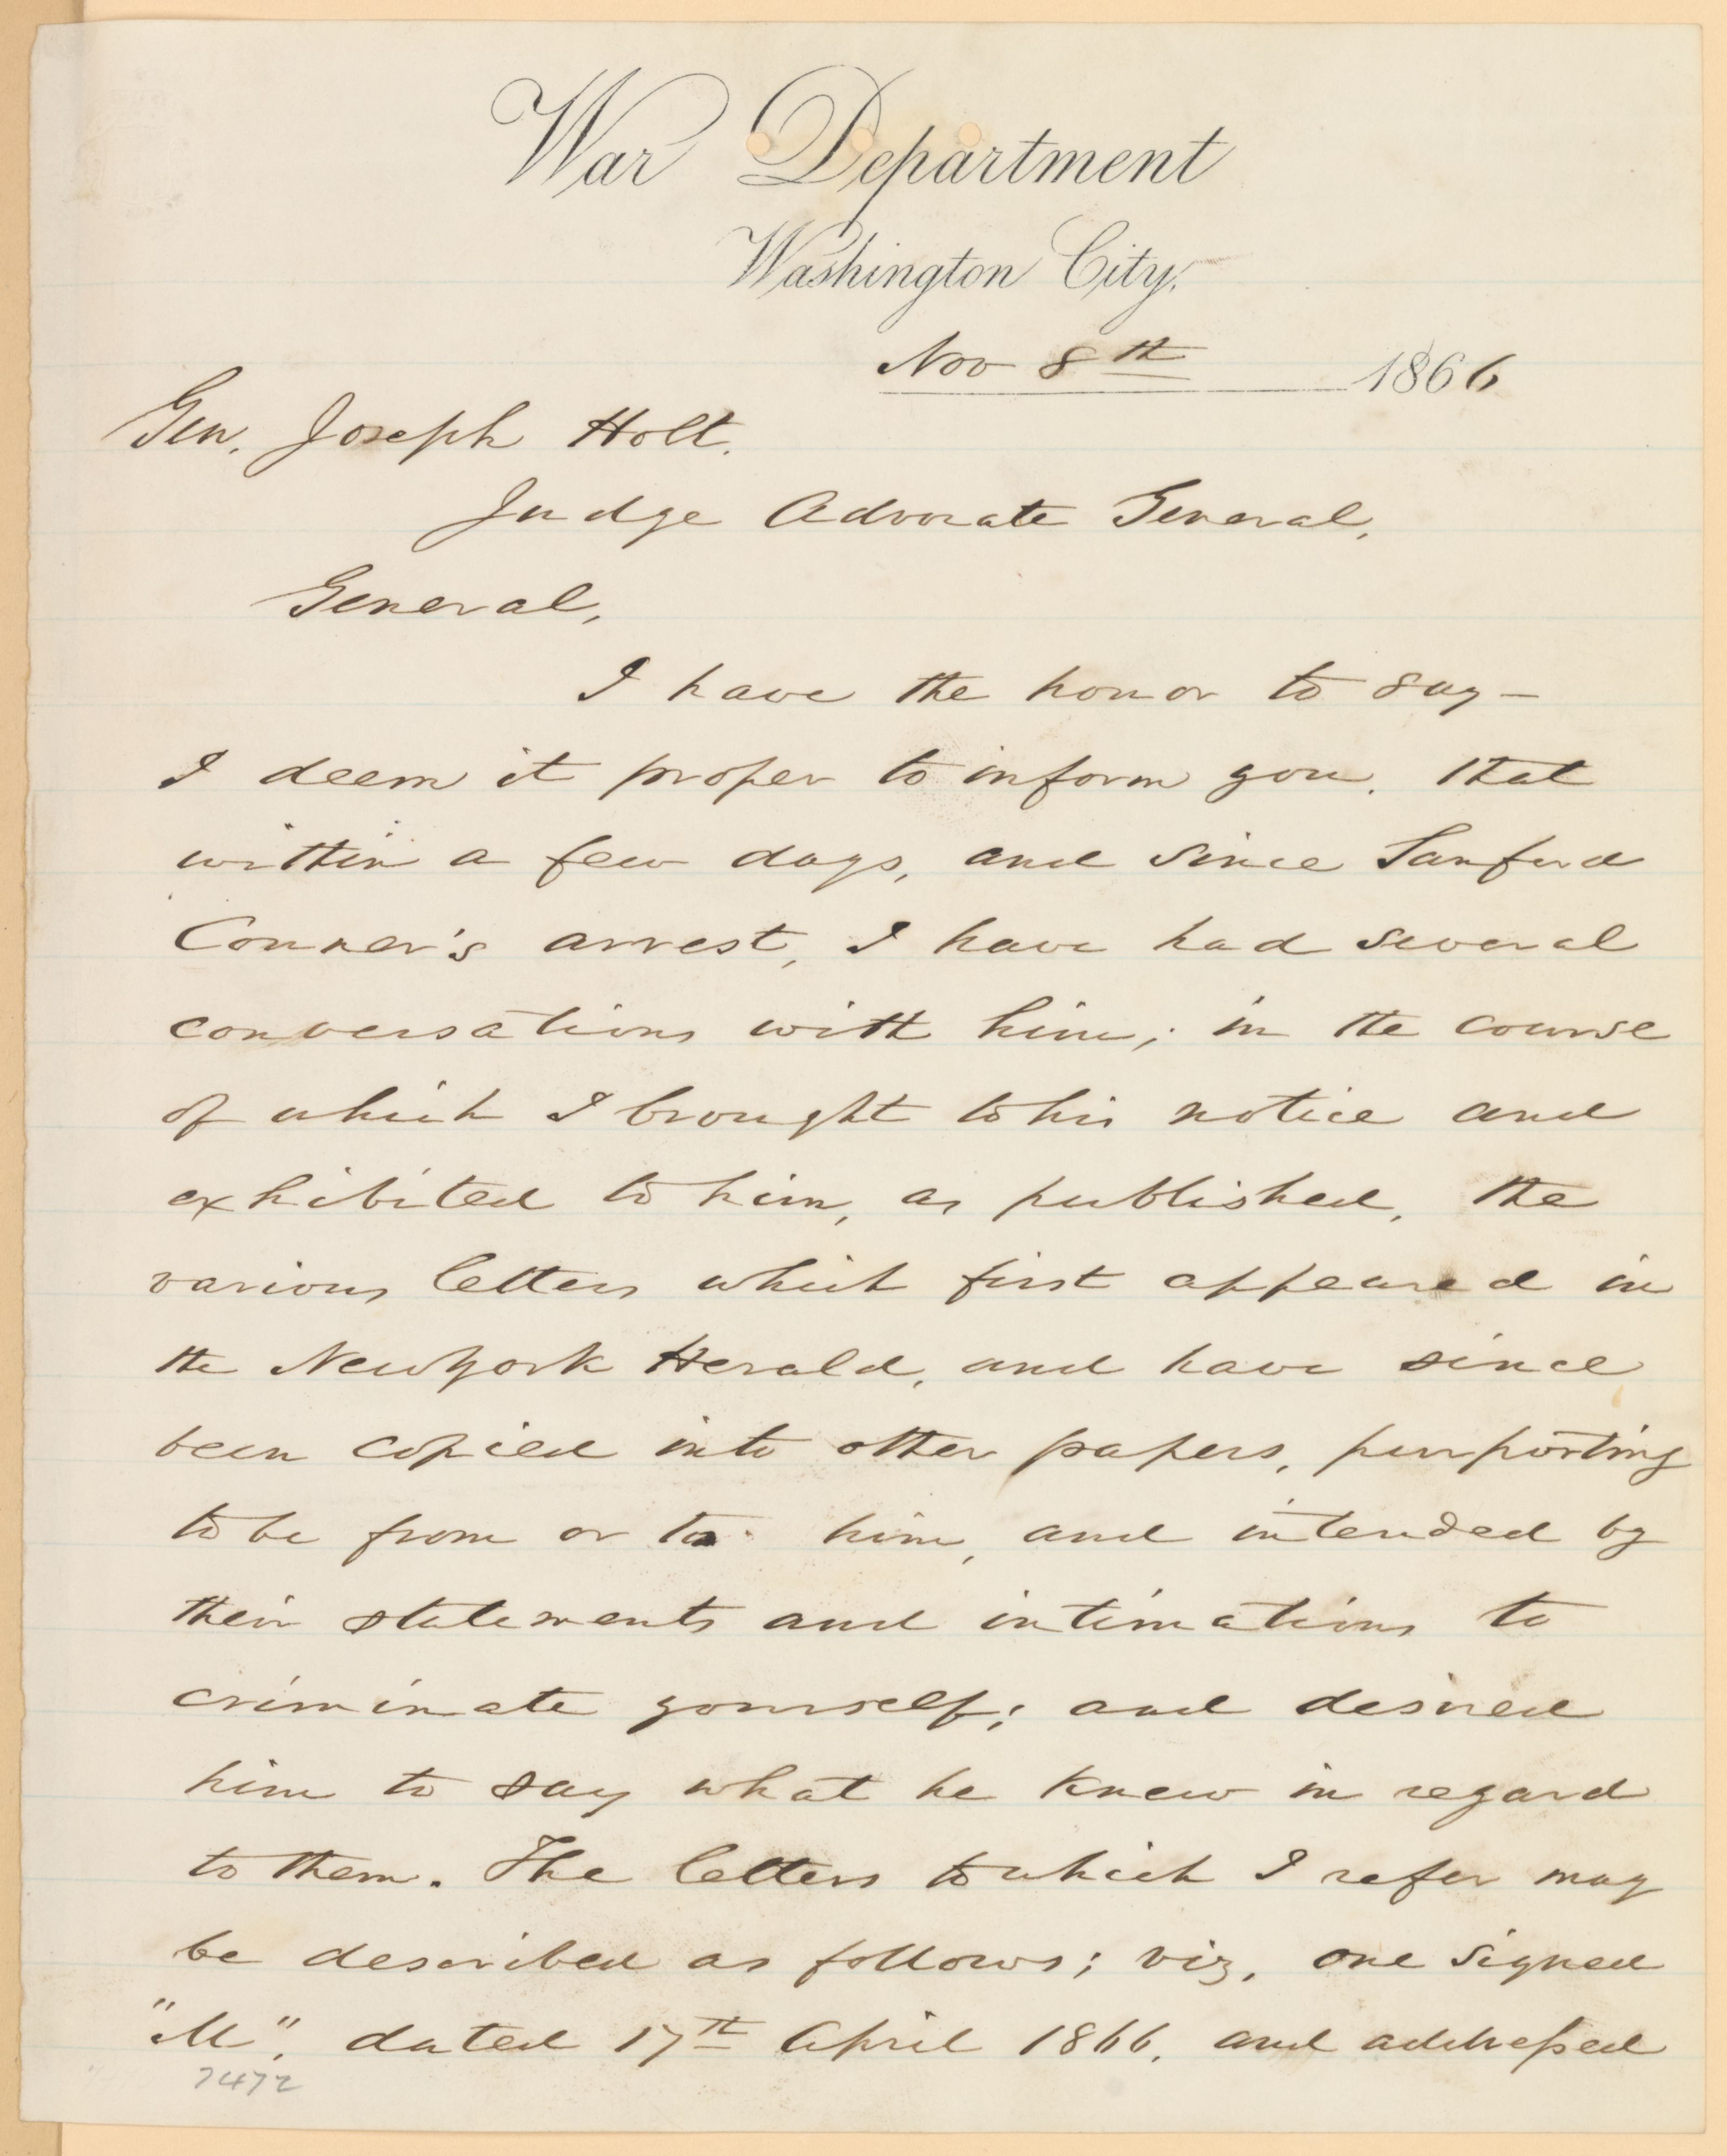 War Department
Washington City,
Nov 8th 1866
Gen. Joseph Holt.
Judge Advocate General,
General,
I have the honor to say —
I deem it proper to inform you, that
within a few days, and since Sanford
Conner's arrest, I have had several
conversations with him; in the course
of which I brought to his notice and
exhibited to him, as published, the
various letters which first appeared in
the New York Herald, and have since
been copied into other papers, purporting
to be from or to him, and intended by
their statements and intimations to
criminate yourself; and desired
him to say what he knew in regard
to them. The letters to which I refer may
be described as follows; viz, one signed
"M", dated 17th April 1866, and addressed
7472